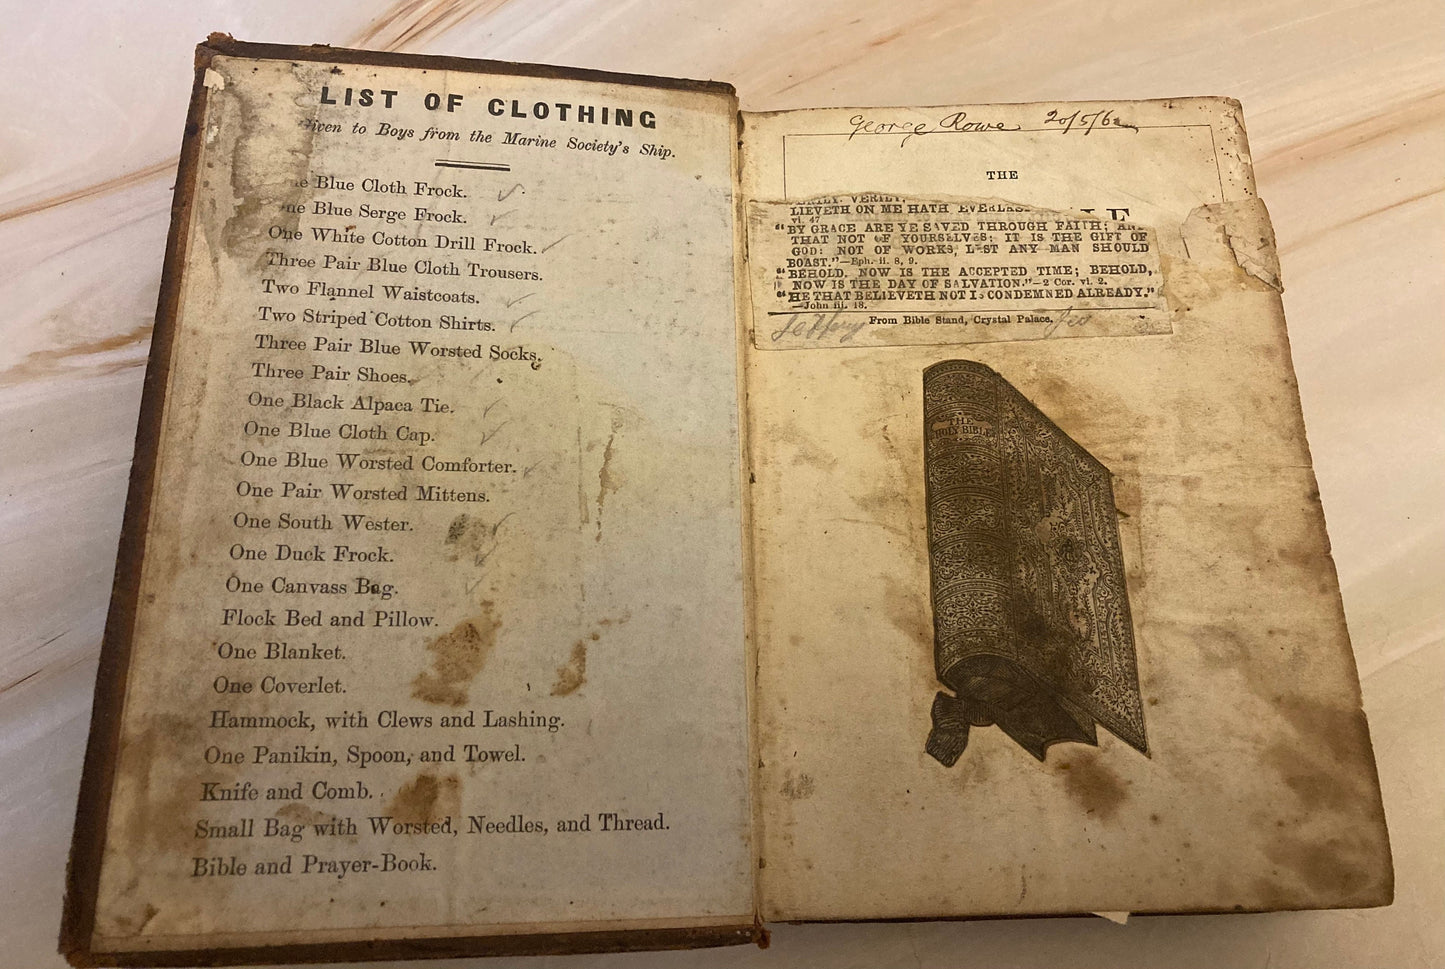 LIST OF CLOTHING
Given to Boys from the Marine Society's Ship.
One Blue Cloth Frock.
One Blue Serge Frock.
One White Cotton Drill Frock.
Three Pair Blue Cloth Trousers.
Two Flannel Waistcoats.
Two Striped Cotton Shirts.
Three Pair Blue Worsted Socks.
Three Pair Shoes.
One Black Alpaca Tie.
One Blue Cloth Cap.
One Blue Worsted Comforter.
One Pair Worsted Mittens.
One South Wester.
One Duck Frock.
One Canvass Bag.
Flock Bed and Pillow.
One Blanket.
One Coverlet.
Hammock, with Clews and Lashing.
One Panikin, Spoon, and Towel.
Knife and Comb.
Small Bag with Worsted, Needles, and Thread.
Bible and Prayer-Book.
George Rowe 20/5/62
THE
VERILY, VERILY,
LIEVETH ON ME HATH EVERLAS
vi. 47
"BY GRACE ARE YE SAVED THROUGH FAITH; AND
THAT NOT OF YOURSELVES: IT IS THE GIFT OF
GOD: NOT OF WORKS, LEST ANY MAN SHOULD
BOAST."—Eph. ii. 8, 9.
"BEHOLD, NOW IS THE ACCEPTED TIME; BEHOLD,
NOW IS THE DAY OF SALVATION."—2 Cor. vi. 2.
"HE THAT BELIEVETH NOT IS CONDEMNED ALREADY."
—John iii. 18.
From Bible Stand, Crystal Palace.
THE
HOLY BIBLE